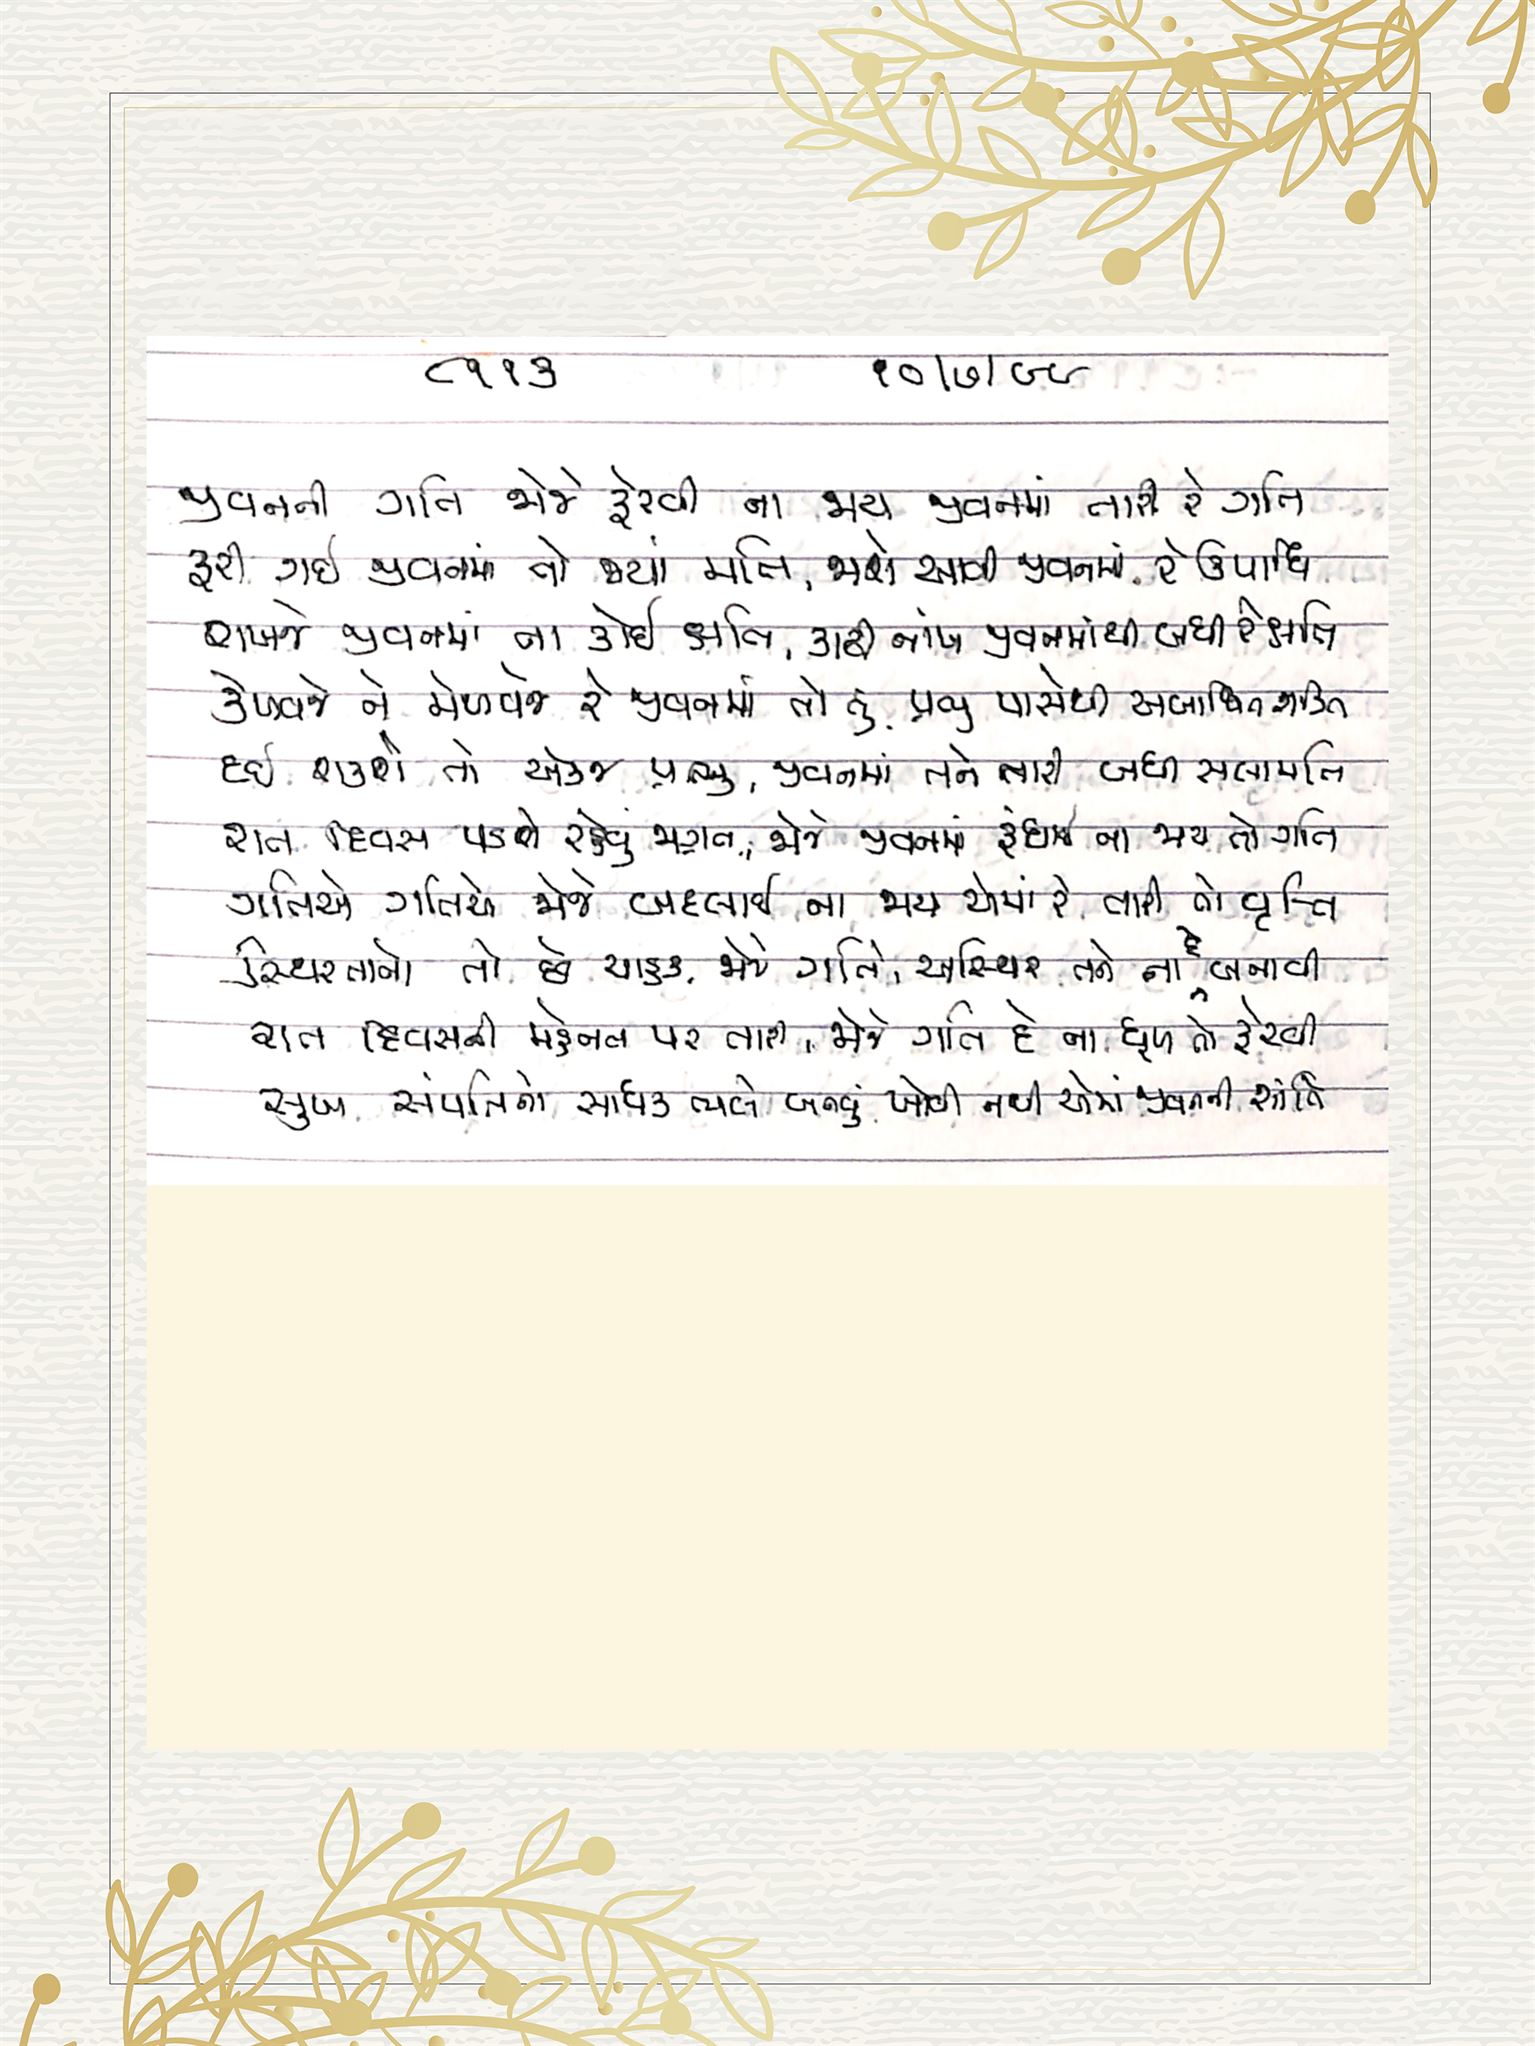 ૮૧૧૩ ૧૦/૭/૯૯
જીવનની ગતિ જોજે ફેરવી ના જાય જીવનમાં તારી રે ગતિ
ફરી ગઈ જીવનમાં તો જ્યાં મતિ, જાશે આવી જીવનમાં રે ઉપાધિ
રાખજે જીવનમાં ના કોઈ ક્ષતિ, કાઢી નાંખ જીવનમાંથી બધી રે ક્ષતિ
કેળવજે ને મેળવજે રે જીવનમાં તો તું પ્રભુ પાસેથી અબાધિત શક્તિ
દઈ શકશે તો એકજ પ્રભુ, જીવનમાં તને તારી બધી સલામતિ
રાત દિવસ પડશે રહેવું જાગ્રત, જોજે જીવનમાં રૂંધાઈ ના જાય તો ગતિ
ગતિએ ગતિએ જોજે બદલાઈ ના જાય એમાં રે તારી તો વૃત્તિ
સ્થિરતાનો તો છે ચાહક, જોજે ગતિ, અસ્થિર તને ના દે બનાવી
રાત દિવસની મહેનત પર તારી, જોજે ગતિ દે ના ધૂળ તો ફેરવી
સુખ સંપત્તિનો સાધક ભલે બનવું ખોવી નથી એમાં જીવનની શાંતિ